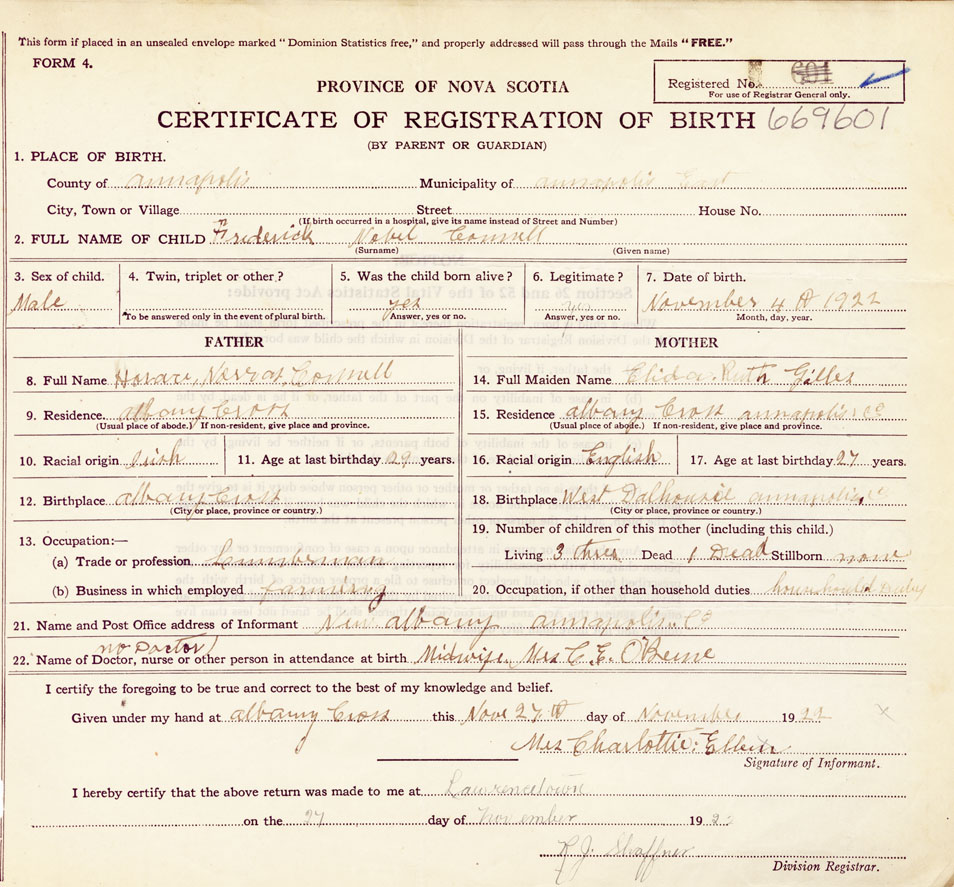 This form if placed in an unsealed envelope marked "Dominion Statistics free," and properly addressed will pass through the Mails "FREE."
FORM 4.
Registered No. 601
For use of Registrar General only.
PROVINCE OF NOVA SCOTIA
CERTIFICATE OF REGISTRATION OF BIRTH 669601
(BY PARENT OR GUARDIAN)
1. PLACE OF BIRTH.
County of annapolis Municipality of annapolis East
City, Town or Village Street House No.
(If birth occurred in a hospital, give its name instead of Street and Number)
2. FULL NAME OF CHILD Frederick Nobel Connell
(Surname) (Given name)
3. Sex of child. 4. Twin, triplet or other? 5. Was the child born alive? 6. Legitimate? 7. Date of birth.
Male yes yes November 4th 1922
To be answered only in the event of plural birth. Answer, yes or no. Answer, yes or no. Month, day, year.
FATHER MOTHER
8. Full Name Horace Connell 14. Full Maiden Name Elida Ruth Gilles
9. Residence. albany Cross 15. Residence albany Cross annapolis Co
(Usual place of abode.) If non-resident, give place and province. (Usual place of abode.) If non-resident, give place and province.
10. Racial origin Irish 11. Age at last birthday 29 years. 16. Racial origin English 17. Age at last birthday 27 years.
12. Birthplace albany Cross 18. Birthplace West Dalhousie annapolis Co
(City or place, province or country.) (City or place, province or country.)
13. Occupation:— 19. Number of children of this mother (including this child.)
(a) Trade or profession Lumberman Living 3 three Dead 1 Dead Stillborn none
(b) Business in which employed farming 20. Occupation, if other than household duties
21. Name and Post Office address of Informant New albany annapolis Co
no Doctor
22. Name of Doctor, nurse or other person in attendance at birth Midwife Mrs C. E. O'Beine
I certify the foregoing to be true and correct to the best of my knowledge and belief.
Given under my hand at albany Cross this Nove 27th day of November 1922
Mrs Charlottie
Signature of Informant.
I hereby certify that the above return was made to me at Lawrencetown
on the 27 day of November 1922
R J. Shaffner
Division Registrar.